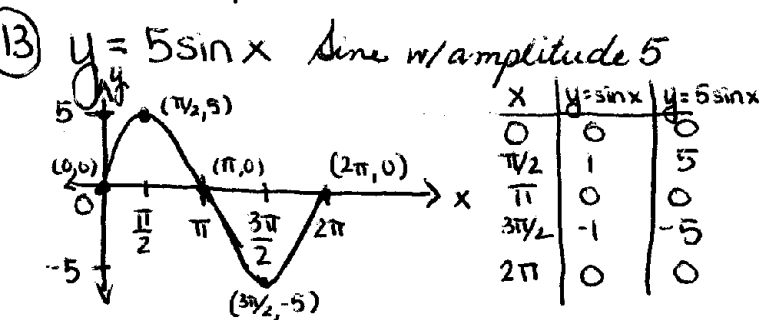 13 y = 5sinx Sine w/amplitude 5
y
5 (π/2,5)
(0,0) (π,0) (2π,0)
0 π/2 π 3π/2 2π x
-5
(3π/2,-5)
x y=sinx y=5sinx
0 0 0
π/2 1 5
π 0 0
3π/2 -1 -5
2π 0 0